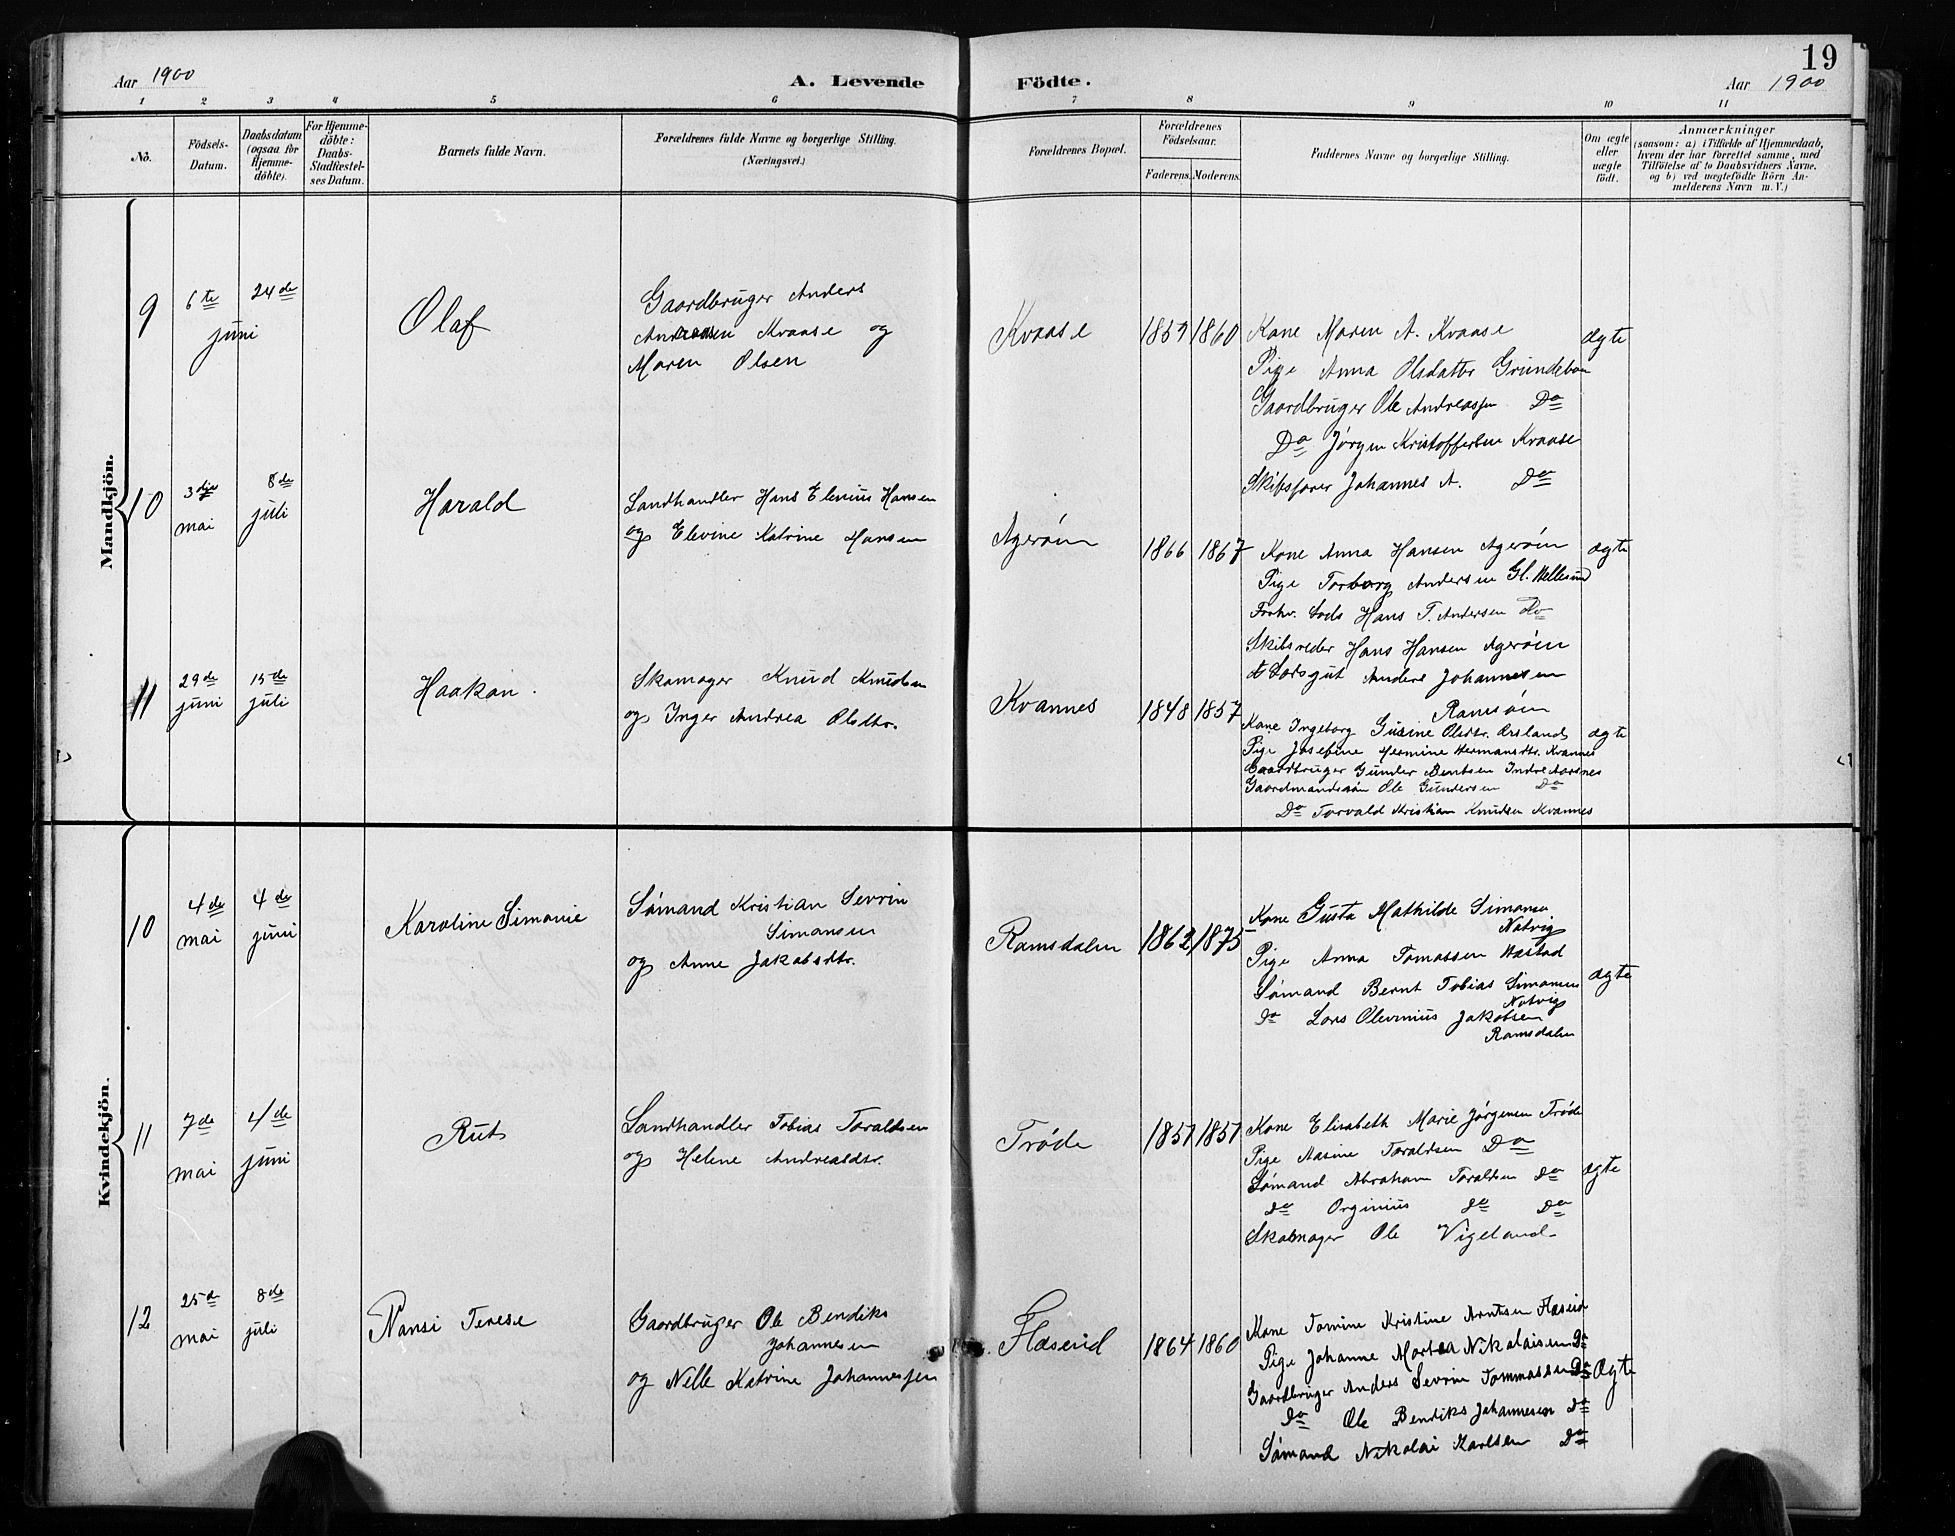 19
Aar 1900
A. Levende Födte.
Aar 1900
1 2 3 4 5 6 7 8 9 10 11
No.
Födsels-Datum.
Daabsdatum (ogsaa for Hjemme-döbte).
For Hjemme-döbte: Daabs-Stadfæstel-ses Datum.
Barnets fulde Navn.
Forældrenes fulde Navne og borgerlige Stilling.
(Næringsvei.)
Forældrenes Bopæl.
Forældrenes Födselsaar.
Faderens. Moderens.
Faddernes Navne og borgerlige Stilling.
Om ægte eller uægte födt.
Anmærkninger
(saasom: a) i Tilfælde af Hjemmedaab,
hvem der har forrettet samme, med
Tilföielse af to Daabsvidners Navne.
og b) ved uægtefödte Börn An-
melderens Navn m. V.)
Mandkjön.
9
6te juni
24de
Olaf
Gaardbruger Anders
Andreasen Kvaase og
Maren Olsen
Kvaase
1857 1860
Kone Maren A. Kvaase
Pige Anna Olsdatter
Gaardbruger Ole Andreassen Do
Do Jørgen Kristoffersen Kvaase
Skibsfører Johannes A. Do
ægte
10
3die mai
8de juli
Harald
Landhandler Hans Elenius Hansen
og Elevine Katrine Hansen
Agerøen
1866 1867
Kone Anna Hansen Agerøen
Pige Torborg Andersen Gl. Hellesund
Lods Hans T. Andersen Do
Skibsreder Hans Hansen Agerøen
Lodsgut Anders Johannesen
Ramsøen
ægte
11
29de juni
15de juli
Haakon.
Skomager Knud Knudsen
og Inger Andrea Olsdtr.
Kvannes
1848 1857
Kone Ingeborg Gusine Olsdtr.Ørsland
Pige Josefine Hermine Hermansdtr. Kvannes
Gaardbruger Gunder Bentsen Indre Aarsnes
Gaardmandssøn Ole Gundersen Do
Do Torvald Kristian Knudsen Kvannes
ægte
Kvindekjön.
10
4de mai
4de juni
Karoline Simonie
Sømand Kristian Sevrin
Simonsen
og Anne Jakobsdtr.
Ramsdalen
1862 1875
Kone Gusta Mathilde Simonsen
Natvig
Pige Anna Tomassen Hæstad
Sømand Bernt Tobias Simonsen
Natvig
Do Lars Olevinius Jakobsen
Ramsdalen
ægte
11
7de mai
4de juni
Rut
Landhandler Tobias Toraldsen
og Helene Andreasdtr.
Trøde
1857 1857
Kone Elisabeth Marie Jørgensen Trøde
Pige Aasine Toraldsen Do
Sømand Abraham Toraldsen Do
Do Orginius Do Do
Skomager Ole Vigeland
ægte
12
25de mai
8de juli
Nansi Terese
Gaardbruger Ole Bendiks
Johannesen
og Nelle Katrine Johannessen
Flaserid
1864 1860
Kone Tomine Kristine Arntsen Flaserid
Pige Johanne Martea Nikolaisen Do
Gaardbruger Anders Sevrin Tommassen Do
Do Ole Bendiks Johannesen Do
Sømand Nikolai Karlsen Do
Ægte